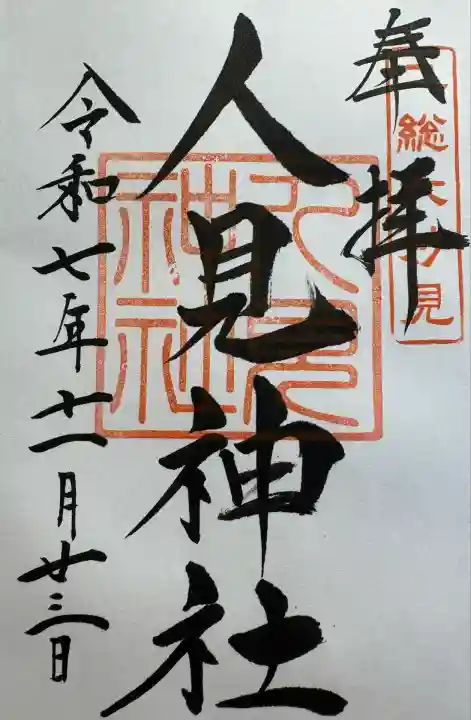 奉拝
総
見
人見神社
人見神社
令和七年十一月廿三日